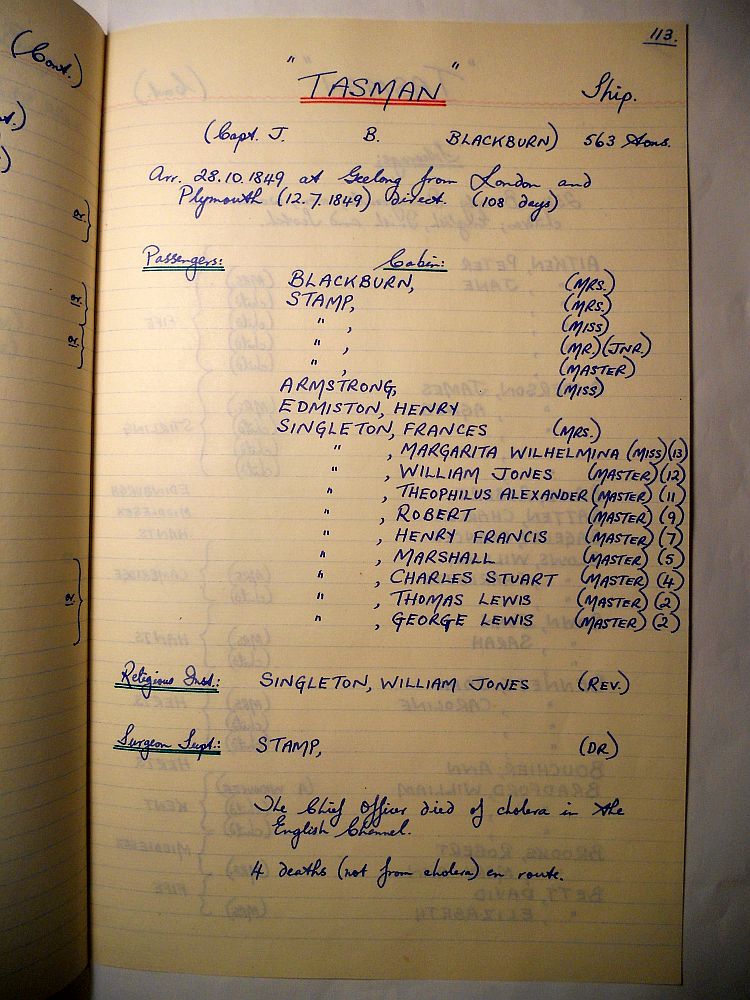 113.
(Cont.)
"TASMAN" Ship.
(Capt. J. B. BLACKBURN) 563 tons.
Arr. 28.10.1849 at Geelong from London and
Plymouth (12.7.1849) direct. (108 days)
Passengers: Cabin:
BLACKBURN, (MRS.)
STAMP, (MRS.)
" , (MISS)
" , (MR.) (JNR.)
" , (MASTER)
ARMSTRONG, (MISS)
EDMISTON, HENRY
SINGLETON, FRANCES (MRS.)
" , MARGARITA WILHELMINA (MISS) (13)
" , WILLIAM JONES (MASTER) (12)
" , THEOPHILUS ALEXANDER (MASTER) (11)
" , ROBERT (MASTER) (9)
" , HENRY FRANCIS (MASTER) (7)
" , MARSHALL (MASTER) (5)
" , CHARLES STUART (MASTER) (4)
" , THOMAS LEWIS (MASTER) (2)
" , GEORGE LEWIS (MASTER) (2)
Religious Inst.: SINGLETON, WILLIAM JONES (REV.)
Surgeon Supt.: STAMP, (DR)
The Chief Officer died of cholera in the
English Channel.
4 deaths (not from cholera) en route.